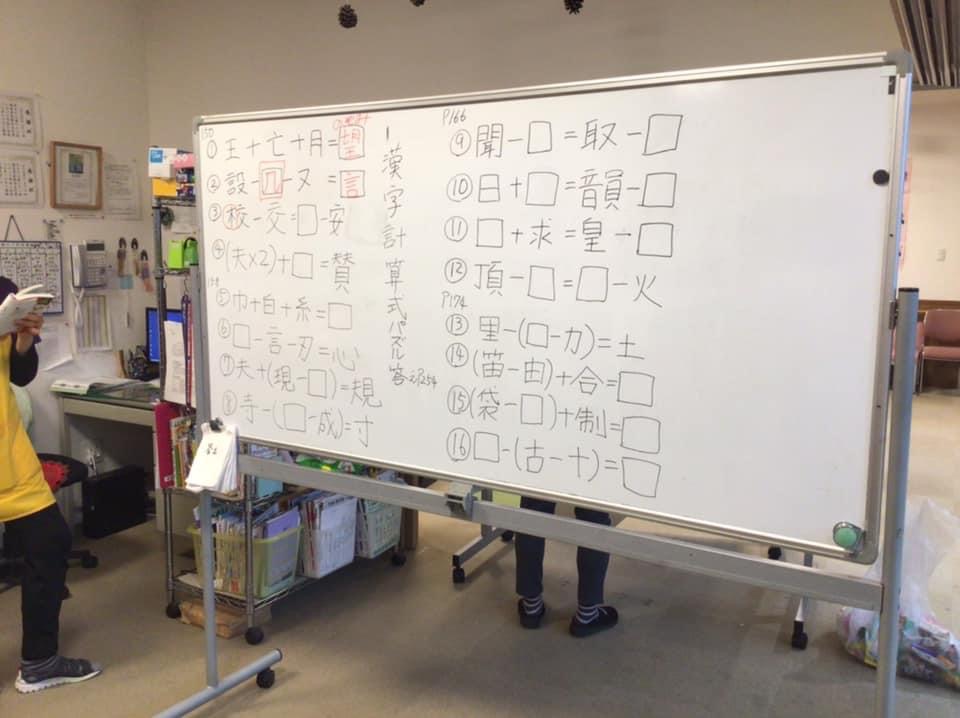 150
① 王+亡+月=望
② 設-几-又=言
③ 校-交=□-安
④ (夫×2)+□=賛
⑤ 巾+白+糸=□
⑥ □-言-刃=心
⑦ 夫+(現-□)=規
⑧ 寺-(□-成)=寸
漢字計算式パズル
答えP254
P166
⑨ 聞-□=取-□
⑩ 日+□=韻-□
⑪ □+求=皇-□
⑫ 頂-□=□-火
P174
⑬ 里-(□-カ)=土
⑭ (笛-由)+合=□
⑮ (袋-□)+制=□
⑯ □-(古-十)=□